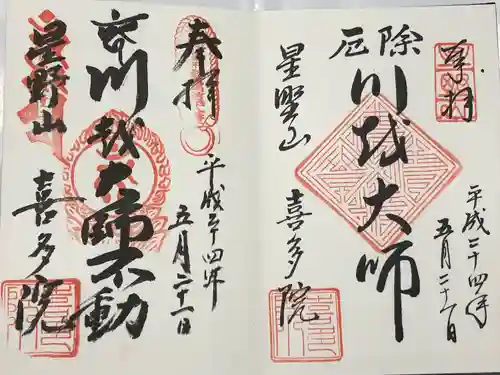 奉拝
厄除
川越大師
星野山
喜多院
平成二十四年
五月二十一日
奉拝
川越大師不動
星野山
喜多院
平成二十四年
五月二十一日